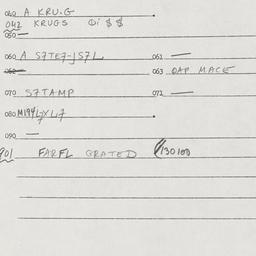 040 A KRU.G
042 KRUGS Øi $ $
050 —
060 A S7TE7-JS7L 061 —
062 063 OAP MACE
070 S7TAMP 072 —
080
090 —
901 FARFL GRATED